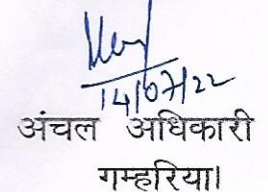 14/07/22
अंचल अधिकारी
गम्हरिया।